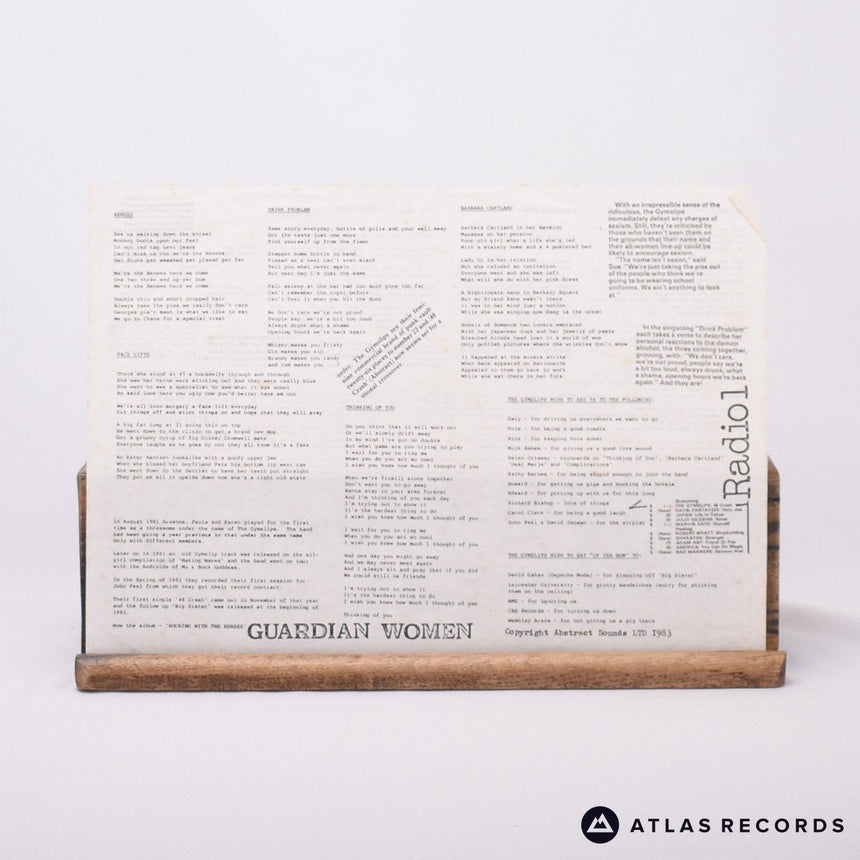 RENEES
See us walking down the street
Monkey boots upon our feet
In our red tag Levi jeans
Can't miss us cos we're the Renees
Get drunk get smashed get pissed get fat
We're the Renees here we come
One two three and up yer bum
We're the Renees here we come
Double chit and short cropped hair
Always take the piss we really don't care
Georges pie'n mash is what we like to eat
We go to Chams for a special treat
FACE LIFTS
There she stood at 45 a housewife through and through
She saw her veins were sticking out and they were really blue
She went to see a specialist to see what it was about
He said look here you ugly cow you'd better have em out
We're all into surgery a face lift everyday
Cut things off and alive things on and hope that they will stay
A big fat lump at 21 going thin on top
He went down to the clinic to get a brand new mop
Got a groovy syrup of fig Oliver Cromwell mate
Everyone laughs as he goes by cos they all know it's a fate
An Ester Rantzen lookalike with a goofy upper jaw
When she kissed her boyfriend Pete his bottom lip went raw
She went down to the dentist to have her teeth put straight
They put em all in upside down now she's a right old state
In August 1981 Suzanne, Paula and Karen played for the first
time as a threesome under the name of The Gymslips. The band
had been going a year previous to that under the same name
only with different members.
Later on in 1981 an old Gymslip track was released on the all-
girl compilation LP "Making Waves" and the band went on tour
with the Androids of Mu & Rock Goddess.
In the Spring of 1982 they recorded their first session for
John Peel from which they got their record contract.
Their first single '48 Crash' came out in November of that year
and the follow up 'Big Sister' was released at the beginning of
1983.
Now the album - 'ROCKING WITH THE RENEES'
GUARDIAN WOMEN
DRINK PROBLEM
Same story everyday, bottle of pills and your well away
Got the taste just one more
Pick yourself up from the floor
Stagger home bottle in hand
Pissed as a newt can't ever stand
Tell you what never again
But next day I'm just the same
Fall asleep at the bar had too much gone too far
Can't remember the night before
Can't feel it when you hit the door
We don't care we're not proud
People say we're a bit too loud
Always drunk what a shame
Opening hours we're back again
Whisky makes you frisky
Gin makes you sin
Brandy makes you randy
and rum makes you
order. The Gymslips see their femi-
nine commercial brand of punk vault
twenty-six places to number 22 and 48
Crash (Abstract) now seems set for a
national crossover.
THINKING OF YOU
Do you think that it will work out
Or we'll slowly drift away
In my mind I've got no doubts
But what game are you trying to play
I wait for you to ring me
When you do you act so cool
I wish you knew how much I thought of you
When we're finally alone together
Don't want you to go away
Wanna stay in your arms forever
And I'm thinking of you each day
I'm trying not to show it
It's the hardest thing to do
I wish you knew how much I thought of you
I wait for you to ring me
When you do you act so cool
I wish you knew how much I thought of you
And one day you might go away
And we may never meet again
And I always sit and pray that if you did
We could still be friends
I'm trying not to show it
It's the hardest thing to do
I wish you knew how much I thought of you
Thinking of you
BARBARA CARTLAND
Barbara Cartland in her mansion
Manages on her pension
Poor old girl what a life she's led
With a stately home and a 4 postered bed
Lady Di is her relation
But she refused an invitation
Everyone went and she was left
What will she do with her pink dress
A Nightingale sang in Berkely Square
But my friend Babs wasn't there
It was in her mind just a notion
While she was singing how deep is the ocean
Novels of Romance two lovers embraced
With her Japanese dogs and her jewels of paste
Bleached blonde head lost in a world of woe
Only publish pictures where the wrinkles don't show
It happened at the miners strike
When Babs appeared on nationwide
Appealed to them go back to work
While she sat there in her furs
THE GYMSLIPS WISH TO SAY TA TO THE FOLLOWING:
Gary - for driving us everywhere we want to go
Vole - for being a good roadie
Mick - for keeping Vole sober
Mick Banes - for giving us a good live sound
Helen Ottaway - keyboards on "Thinking of You", "Barbara Cartland"
"Dear Marje" and "Complications"
Kathy Barnes - for being stupid enough to join the band
Howard - for getting us gigs and booking the hotels
Edward - for putting up with us for this long
Richard Bishop - lots of things
Carol Clerk - for being a good laugh
John Peel & David Jensen - for the airplay
THE GYMSLIPS WISH TO SAY "UP YER BUM" TO:
David Gahan (Depeche Mode) - for slagging off "Big Sister"
Leicester University - for grotty sandwiches (sorry for sticking
them on the ceiling)
NME - for ignoring us
CBS Records - for turning us down
Wembley Arena - for not giving us a gig there
Copyright Abstract Sounds LTD 1983
With an irrepressible sense of the
ridiculous, the Gymslips
immediately defeat any charges of
sexism. Still, they're criticised by
those who haven't seen them on
the grounds that their name and
their all-women line-up could be
likely to encourage sexism.
"The name isn't sexist," said
Sue. "We're just taking the piss out
of the people who think we're
going to be wearing school
uniforms. We ain't anything to look
at."
In the singalong "Drink Problem"
each takes a verse to describe her
personal reactions to the demon
alcohol, the three coming together,
grinning, with: "We don't care,
we're not proud, people say we're
a bit too loud, always drunk, what
a shame, opening hours we're back
again." And they are!
Radio1
THE GYMSLIPS: 48 Crash
JAPAN: Life In Tokyo
JULIO IGLESIAS: Amor
MARVIN GAYE: (Sexual)
Healing
ROBERT WYATT: Shipbuilding
SHAKATAK: Stranger
ADAM ANT: Friend Or Foe
AMERICA: You Can Do Magic
BAD MANNERS: Samson And
ATLAS RECORDS